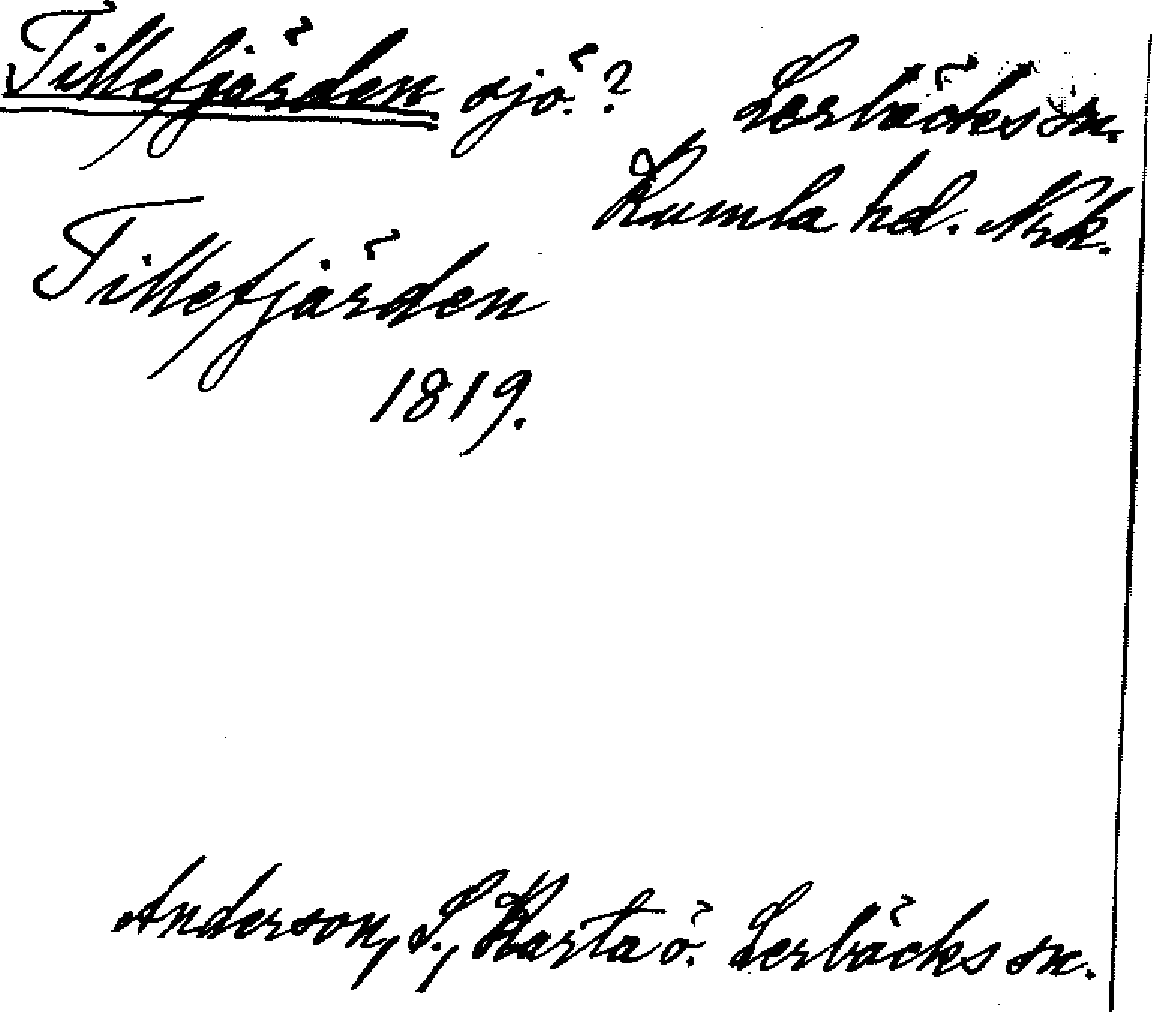 Tillefjärden sjö? Lerbäcks sn.
Kumla hd. Nrk.
Tillefjärden
1819.
Anderson, S., Karta ö. Lerbäcks sn.